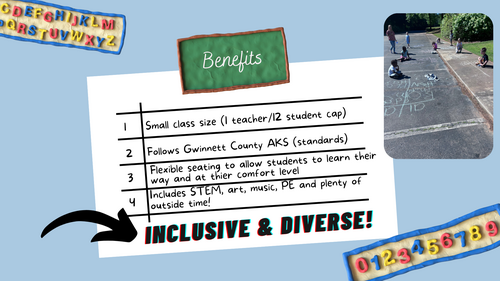 CDEFGHIJKLM
PQRSTUVWXYZ
Benefits
1 Small class size (1 teacher/12 student cap)
2 Follows Gwinnett County AKS (standards)
3 Flexible seating to allow students to learn their
way and at thier comfort level
4 Includes STEM, art, music, PE and plenty of
outside time!
INCLUSIVE & DIVERSE!
0123456789